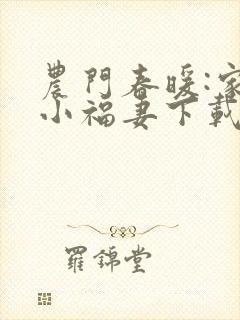 農門春暖:家
小福妻下載
羅錦堂